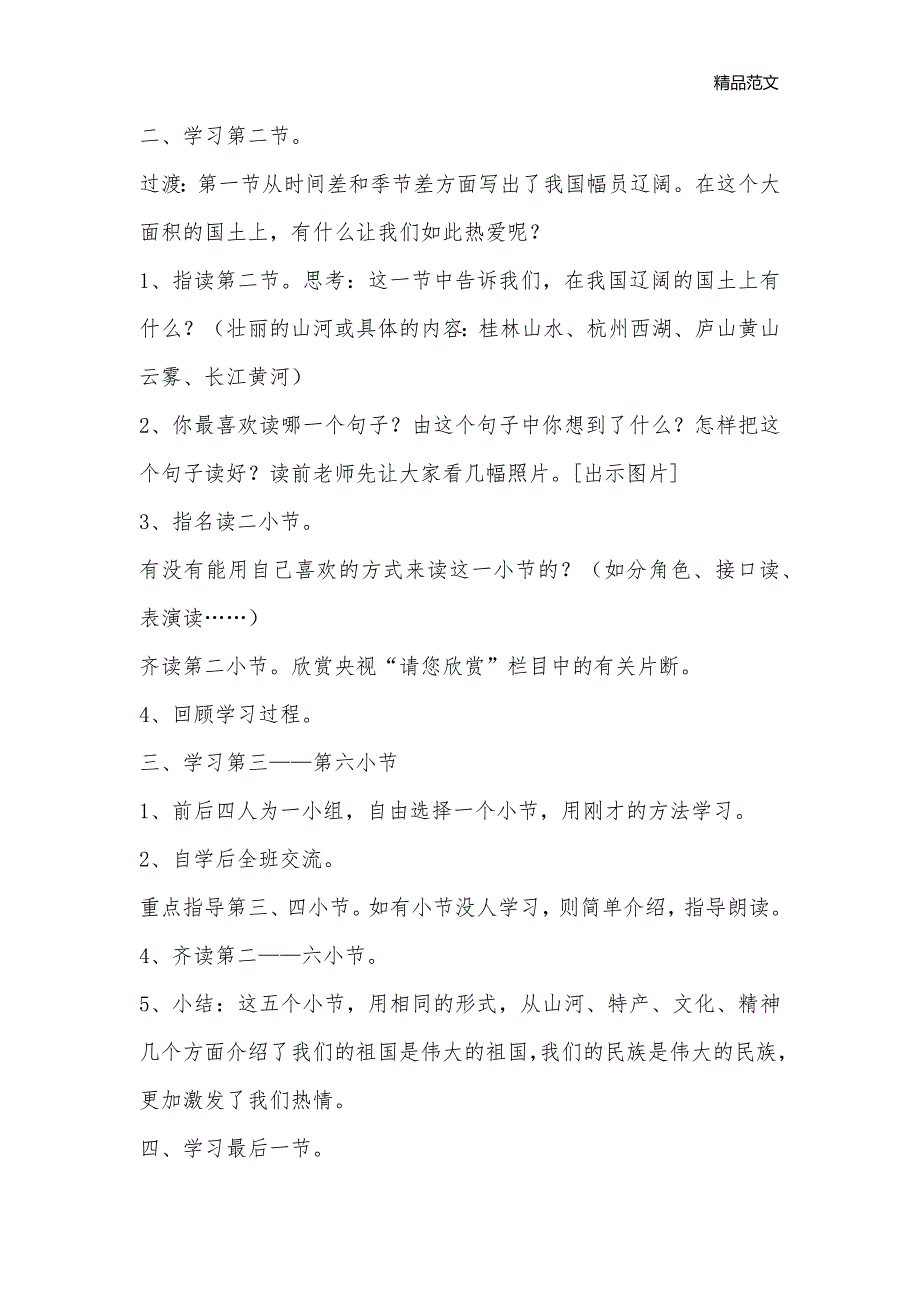 精品范文
二、学习第二节。
过渡：第一节从时间差和季节差方面写出了我国幅员辽阔。在这个大
面积的国土上，有什么让我们如此热爱呢？
1、指读第二节。思考：这一节中告诉我们，在我国辽阔的国土上有
什么？（壮丽的山河或具体的内容：桂林山水、杭州西湖、庐山黄山
云雾、长江黄河）
2、你最喜欢读哪一个句子？由这个句子中你想到了什么？怎样把这
个句子读好？读前老师先让大家看几幅照片。[出示图片]
3、指名读二小节。
有没有能用自己喜欢的方式来读这一小节的？（如分角色、接口读、
表演读……）
齐读第二小节。欣赏央视“请您欣赏”栏目中的有关片断。
4、回顾学习过程。
三、学习第三——第六小节
1、前后四人为一小组，自由选择一个小节，用刚才的方法学习。
2、自学后全班交流。
重点指导第三、四小节。如有小节没人学习，则简单介绍，指导朗读。
4、齐读第二——六小节。
5、小结：这五个小节，用相同的形式，从山河、特产、文化、精神
几个方面介绍了我们的祖国是伟大的祖国，我们的民族是伟大的民族，
更加激发了我们热情。
四、学习最后一节。